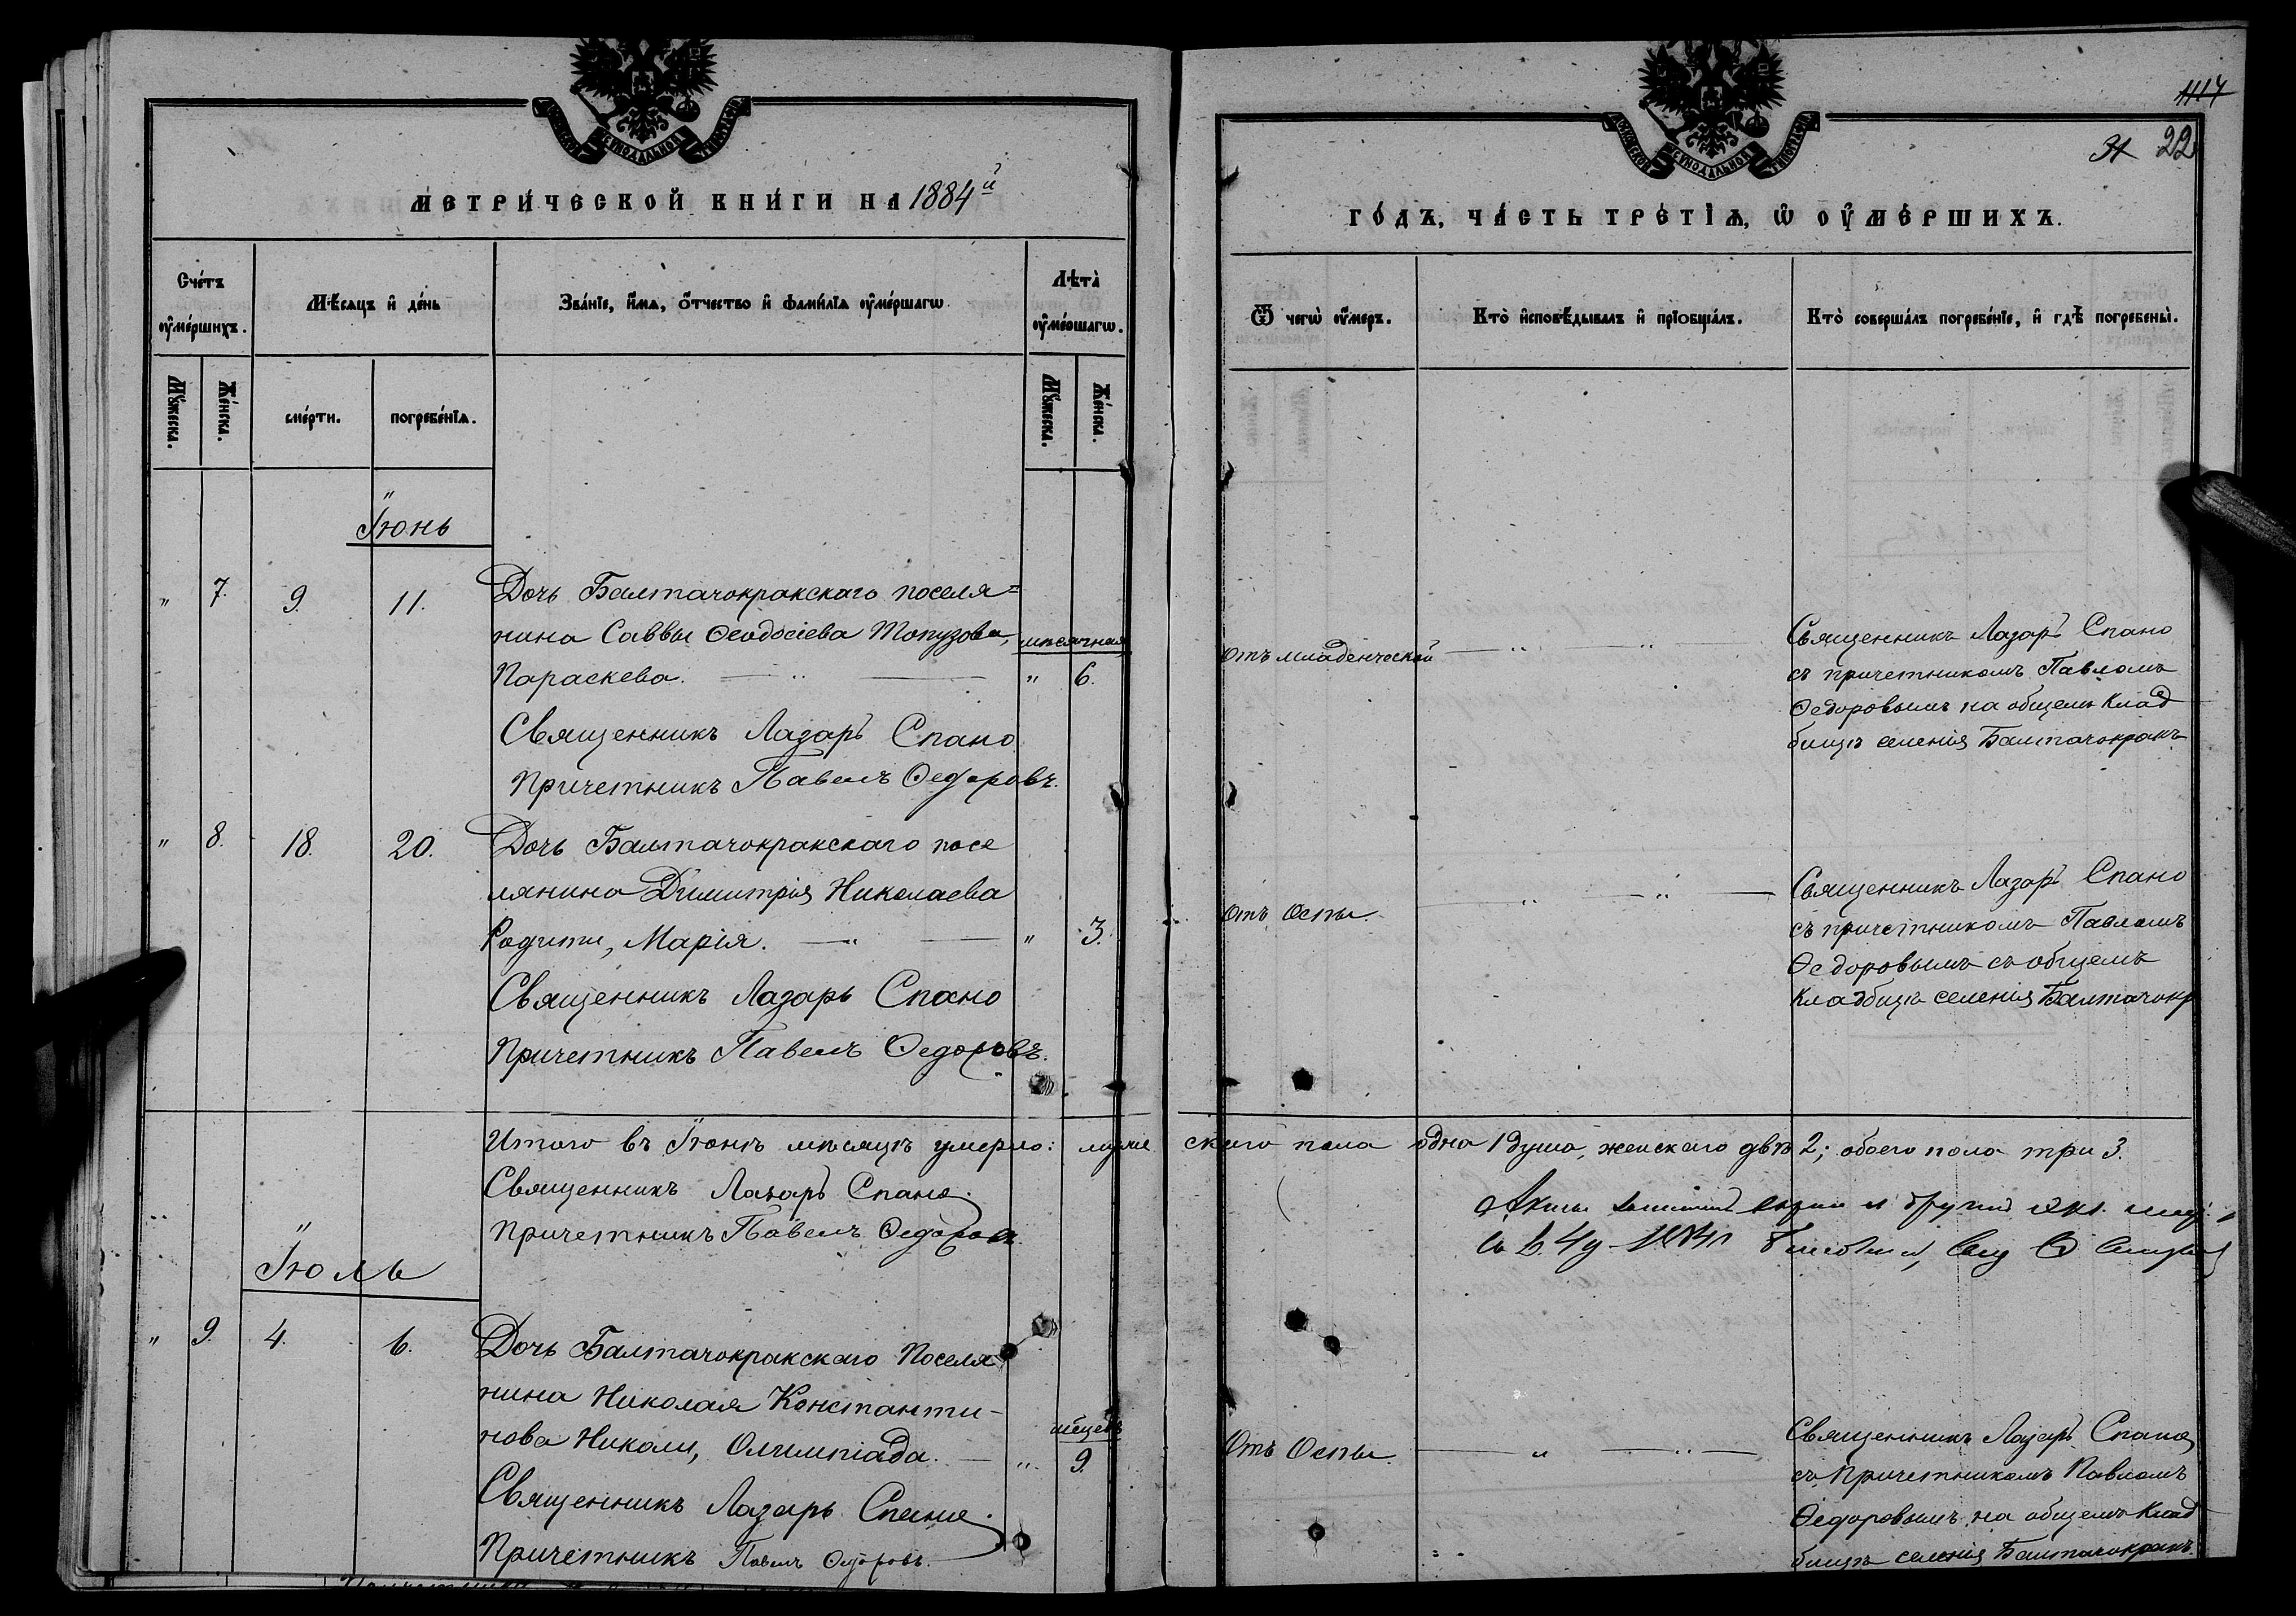 1117
31 22
МОСКОВСКОЙ СѴНОДАЛЬНОЙ ТИПОГРАФІИ
МОСКОВСКОЙ СѴНОДАЛЬНОЙ ТИПОГРАФІИ
МЕТРИ́ЧЕСКОЙ КНИ́ГИ НА 1884й
ГО́ДЪ, ЧА́СТЬ ТРЕ́ТІѦ, Ѡ҆ ОУ҆МЕ́РШИХЪ.
Сче́тъ оу҆ме́ршихъ.
Мꙋ́жеска.
Же́нска.
Мѣ́сѧцъ и҆ де́нь
сме́рти.
погребе́нїѧ.
Зва́нїе, и҆́мѧ, ѻ҆́тчество и҆ фами́лїѧ оу҆ме́ршагѡ.
Лѣ́та оу҆ме́ршагѡ.
Мꙋ́жеска.
Же́нска.
Ѿ чегѡ̀ оу҆́меръ.
Кто̀ и҆сповѣ́дывалъ и҆ прїѡбща́лъ.
Кто̀ соверша́лъ погребе́нїе, и҆ гдѣ̀ погребены̀.
Іюнь
" 7. 9. 11. Дочь Балтачокракскаго поселя=
нина Саввы Ѳеодосіева Топузова, мѣсячная
Параскева. — " — " 6.
Священникъ Лазарь Спано
Причетникъ Павелъ Ѳедоровъ.
Отъ младенческой — " — "
Священникъ Лазарь Спано
съ причетникомъ Павломъ
Ѳедоровымъ на общемъ клад
бищѣ селенія Балтачокракъ
" 8. 18. 20. Дочь Балтачокракскаго посе
лянина Димитрія Николаева
Родити, Марія. — " — " 3.
Священникъ Лазарь Спано
Причетникъ Павелъ Ѳедоровъ.
Отъ Оспы — " — " —
Священникъ Лазарь Спано
съ причетникомъ Павломъ
Ѳедоровымъ съ общемъ
кладбищѣ селенія Балтачокр
Итого въ Іюнѣ мѣсяцѣ умерло: муже ского пола одна 1 душа, женскаго двѣ 2; обоего пола три 3.
Священникъ Лазарь Спано.
Причетникъ Павелъ Ѳедоровъ
Іюль
" 9. 4. 6. Дочь Балтачокракскаго Поселя
нина Николая Константи-
нова Николи, Олимпіада. — мѣсцевъ " 9.
Священникъ Лазарь Спано.
Причетникъ Павелъ Ѳедоровъ.
Отъ Оспы — " — " —
Священникъ Лазарь Спано
съ Причетникомъ Павломъ
Ѳедоровымъ на общемъ клад
бищѣ селенія Балтачокракъ.